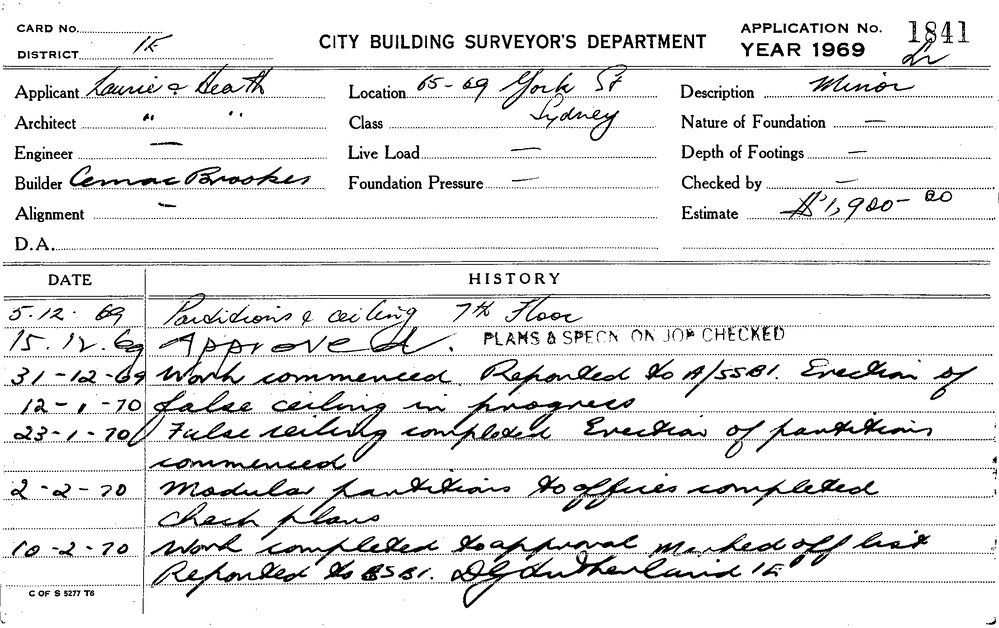 CARD No.
DISTRICT 1E
CITY BUILDING SURVEYOR'S DEPARTMENT
APPLICATION No. 1841
YEAR 1969
Applicant Laurie & Heath
Location 65-69 York St
Sydney
Description Minor
Architect " "
Class
Nature of Foundation —
Engineer —
Live Load —
Depth of Footings —
Builder Cemac Brookes
Foundation Pressure —
Checked by —
Alignment —
Estimate $1,900-00
D.A.
DATE HISTORY
5.12.69 Partitions & ceiling 7th Floor
15.12.69 Approved. PLANS & SPECN ON JOB CHECKED
31-12-69 Work commenced. Reported to A/SSBI. Erection of
12-1-70 false ceiling in progress
23-1-70 False ceiling completed Erection of partitions
commenced
2-2-70 Modular partitions to offices completed
Check plans
10-2-70 Work completed to approval Marked off list
Reported to BSBI. DG Sutherland 1E
C OF S 5277 T6